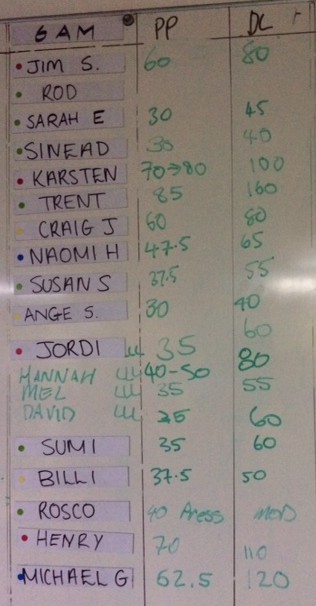 6 AM PP DL
JIM S. 60 80
ROD
SARAH E 30 45
SINEAD 30 40
KARSTEN 70→80 100
TRENT 85 160
CRAIG J 60 80
NAOMI H 47.5 65
SUSAN S 37.5 55
ANGE S. 30 40
60
JORDI 35 80
HANNAH 40-50
MEL 35 55
DAVID 25 60
SUMI 35 60
BILLI 37.5 50
ROSCO 40 Press MOD
HENRY 70 110
MICHAEL G 62.5 120